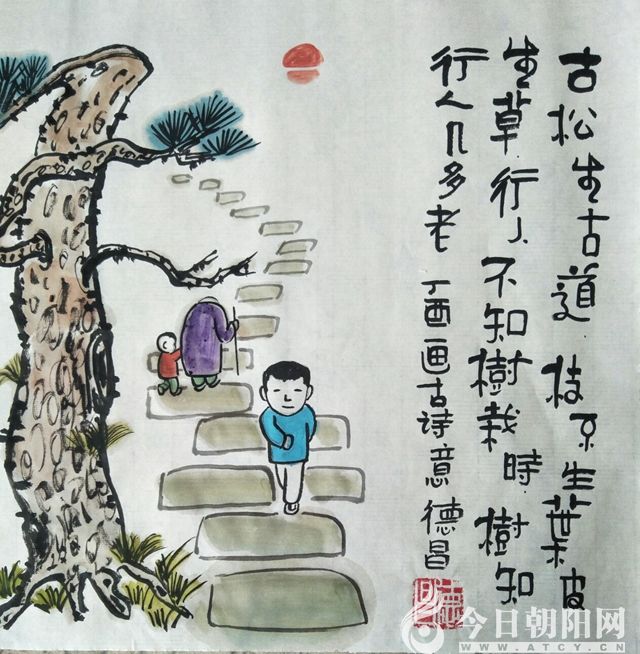 古松生古道枝不生葉皮
生草行人不知樹栽時樹知
行人几多老 丁酉画古诗意德昌
今日朝阳网
WWW.ATCY.CN